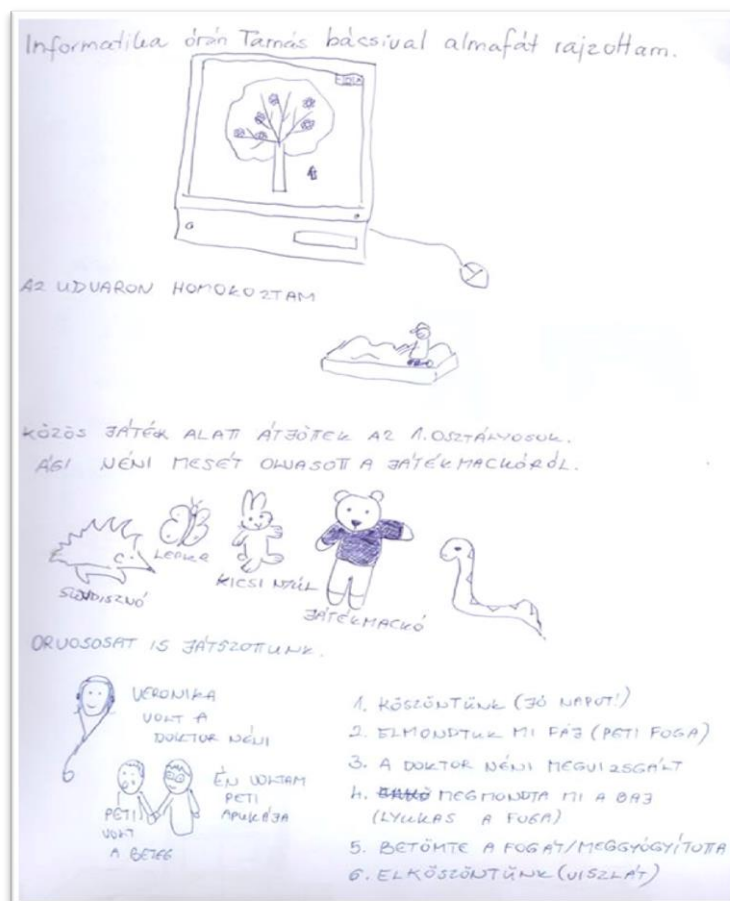 Informatika órán Tamás bácsival almafát rajzoltam.
AZ UDVARON HOMOKOZTAM
KÖZÖS JÁTÉK ALATT ÁTJÖTTEK AZ 1. OSZTÁLYOSOK.
ÁGI NÉNI MESÉT OLVASOTT A JÁTÉKMACKÓRÓL.
SÜNDISZNÓ
LEPKE
KICSI NYÚL
JÁTÉKMACKÓ
ORVOSOSAT IS JÁTSZOTTUNK.
VERONIKA
VOLT A
DOKTOR NÉNI
PETI
VOLT
A BETEG
ÉN VOLTAM
PETI
APUKÁJA
1. KÖSZÖNTÜNK (JÓ NAPOT!)
2. ELMONDTUK MI FÁJ (PETI FOGA)
3. A DOKTOR NÉNI MEGVIZSGÁLT
4. MEGMONDTA MI A BAJ
(LYUKAS A FOGA)
5. BETÖMTE A FOGÁT/MEGGYÓGYÍTOTTA
6. ELKÖSZÖNTÜNK (VISZLÁT)